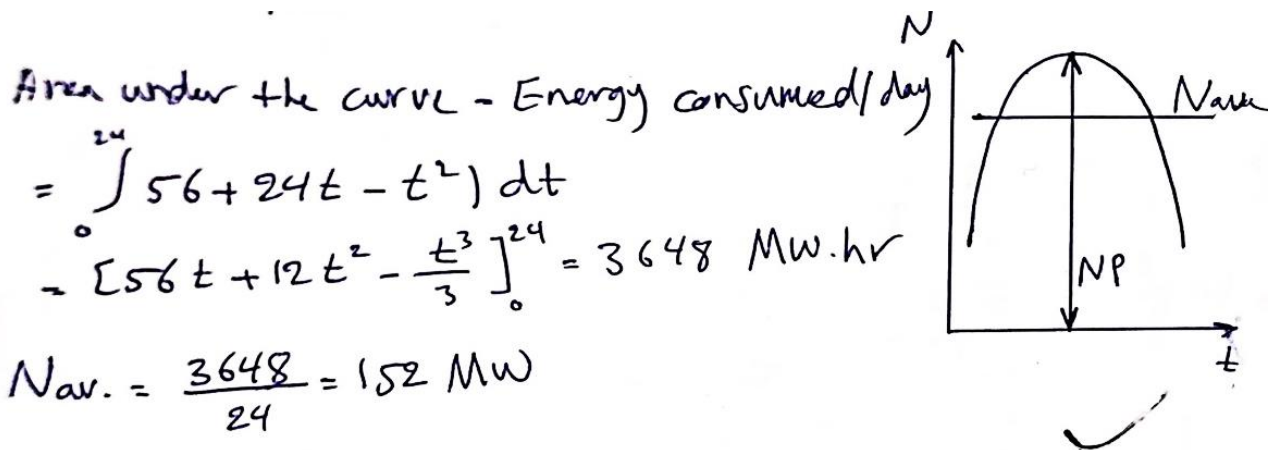 Area under the curve - Energy consumed/day
= ∫₀²⁴ 56 + 24t - t²) dt
= [56t + 12t² - t³/3]₀²⁴ = 3648 MW.hr
Nav. = 3648/24 = 152 MW
N
Nave
NP
t